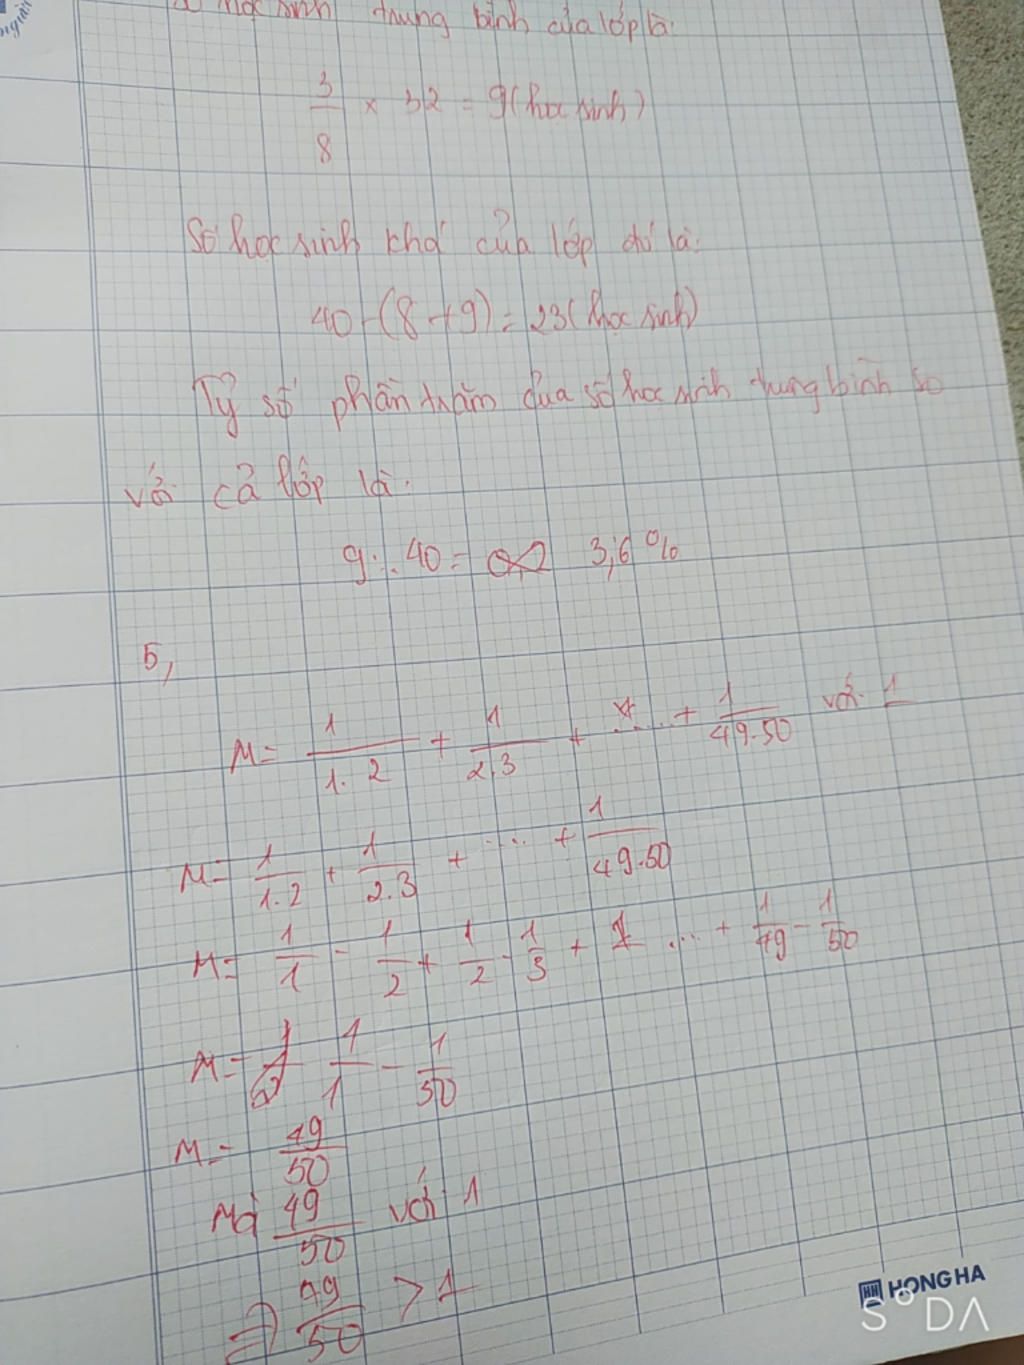 học sinh trung bình của lớp là:
3/8 × 32 = 9 (học sinh)
Số học sinh khá của lớp đó là:
40 - (8 + 9) = 23 (học sinh)
Tỷ số phần trăm của số học sinh trung bình so
với cả lớp là:
9 : 40 = 3,6 %
5,
M = 1/1.2 + 1/2.3 + ... + 1/49.50 với 1
M = 1/1.2 + 1/2.3 + ... + 1/49.50
M = 1/1 - 1/2 + 1/2 - 1/3 + ... + 1/49 - 1/50
M = 1/1 - 1/50
M = 49/50
Mà 49/50 với 1
⇒ 49/50 > 1
HONG HA
S°DA